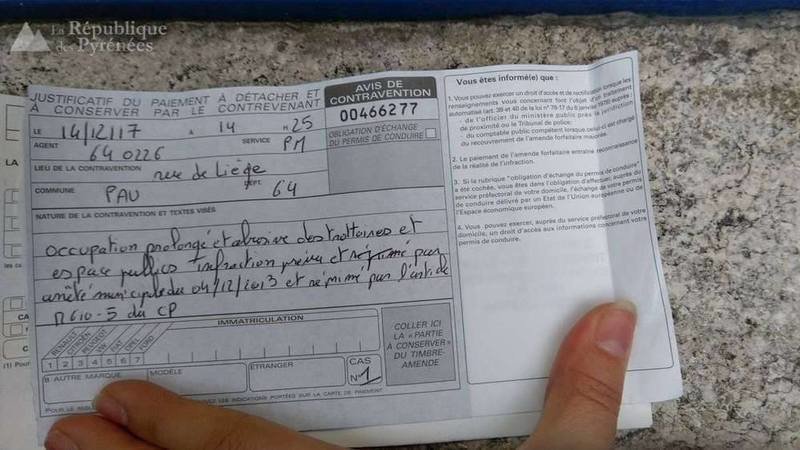 La République
des Pyrénées
JUSTIFICATIF DU PAIEMENT À DÉTACHER ET
À CONSERVER PAR LE CONTREVENANT
AVIS DE
CONTRAVENTION
00466277
OBLIGATION D'ÉCHANGE
DU PERMIS DE CONDUIRE
LE 14/12/17 À 14 H 25
AGENT 640226 SERVICE PM
LIEU DE LA CONTRAVENTION rue de Liège
COMMUNE PAU DÉPT. 64
NATURE DE LA CONTRAVENTION ET TEXTES VISÉS
occupation prolongé et abusive des trottoires et
espace publics infraction prévu et réprimé par
arrêté municipale du 04/12/2013 et réprimé par l'article
R610-5 du CP
IMMATRICULATION
RENAULT CITROËN PEUGEOT VW FIAT OPEL FORD
1 2 3 4 5 6 7
8 AUTRE MARQUE MODÈLE ÉTRANGER CAS
N° 1
COLLER ICI
LA « PARTIE
À CONSERVER »
DU TIMBRE-
AMENDE
INDICATIONS PORTÉES SUR LA CARTE DE PAIEMENT
Vous êtes informé(e) que :
1. Vous pouvez exercer un droit d'accès et de rectification lorsque les
renseignements vous concernant font l'objet d'un traitement
automatisé (art. 39 et 40 de la loi n° 78-17 du 6 janvier 1978) auprès :
- de l'officier du ministère public près la juridiction
de proximité ou le Tribunal de police;
- du comptable public compétent lorsque celui-ci est chargé
du recouvrement de l'amende forfaitaire majorée.
2. Le paiement de l'amende forfaitaire entraîne reconnaissance
de la réalité de l'infraction.
3. Si la rubrique "obligation d'échange du permis de conduire"
a été cochée, vous êtes dans l'obligation d'effectuer, auprès du
service préfectoral de votre domicile, l'échange de votre permis
de conduire délivré par un Etat de l'Union européenne ou de
l'Espace économique européen.
4. Vous pouvez exercer, auprès du service préfectoral de votre
domicile, un droit d'accès aux informations concernant votre
permis de conduire.